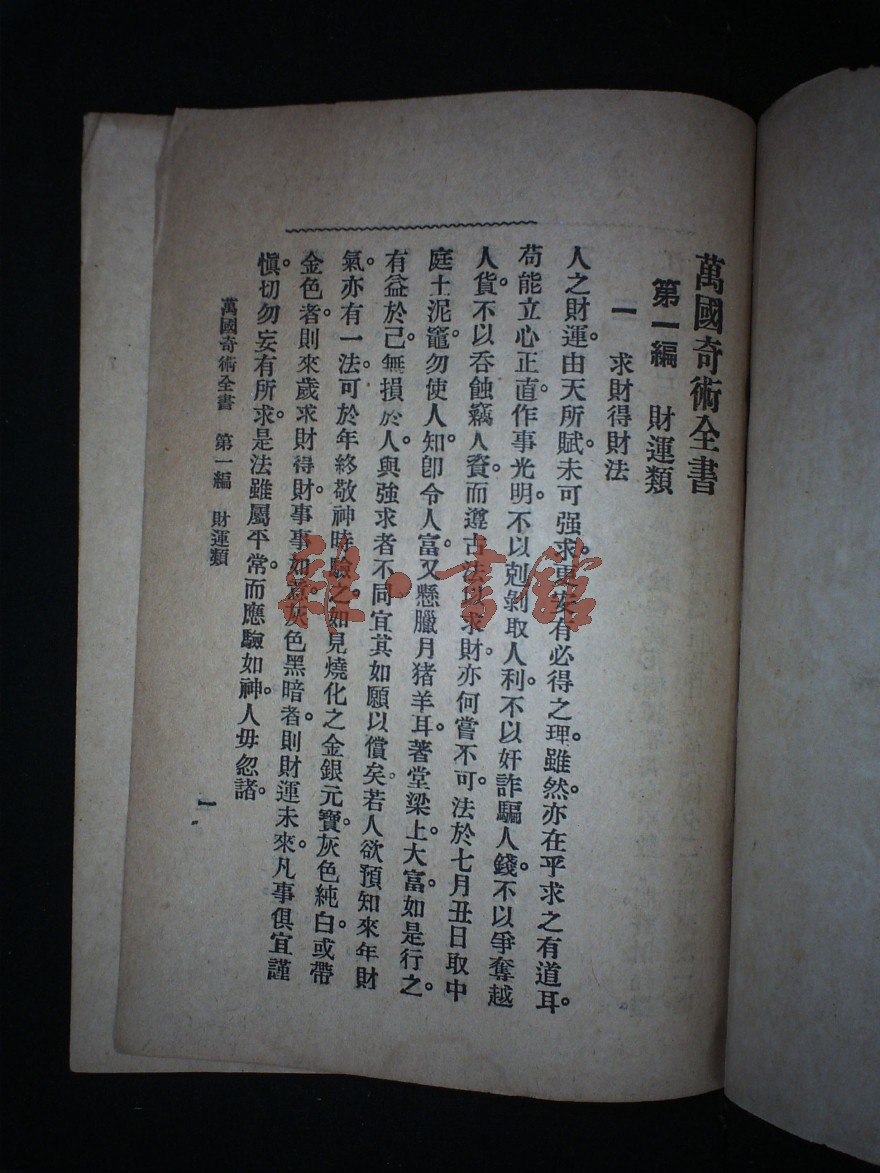 萬國奇術全書
第一編　財運類
一　求財得財法
人之財運。由天所賦。未可强求。更安有必得之理。雖然。亦在乎求之有道耳。
苟能立心正直。作事光明。不以剋剝取人利。不以奸詐騙人錢。不以爭奪越
人貨。不以吞蝕竊人資。而遵古法以求財。亦何嘗不可。法於七月丑日取中
庭土泥竈。勿使人知。卽令人富。又懸臘月猪羊耳著堂梁上。大富。如是行之。
有益於己。無損於人。與強求者不同。宜其如願以償矣。若人欲預知來年財
氣。亦有一法。可於年終敬神時驗之。如見燒化之金銀元寶。灰色純白。或帶
金色者。則來歲求財得財。事事如意。灰色黑暗者。則財運未來。凡事俱宜謹
愼。切勿妄有所求。是法雖屬平常。而應驗如神。人毋忽諸。
萬國奇術全書　第一編　財運類
一
雅·書館